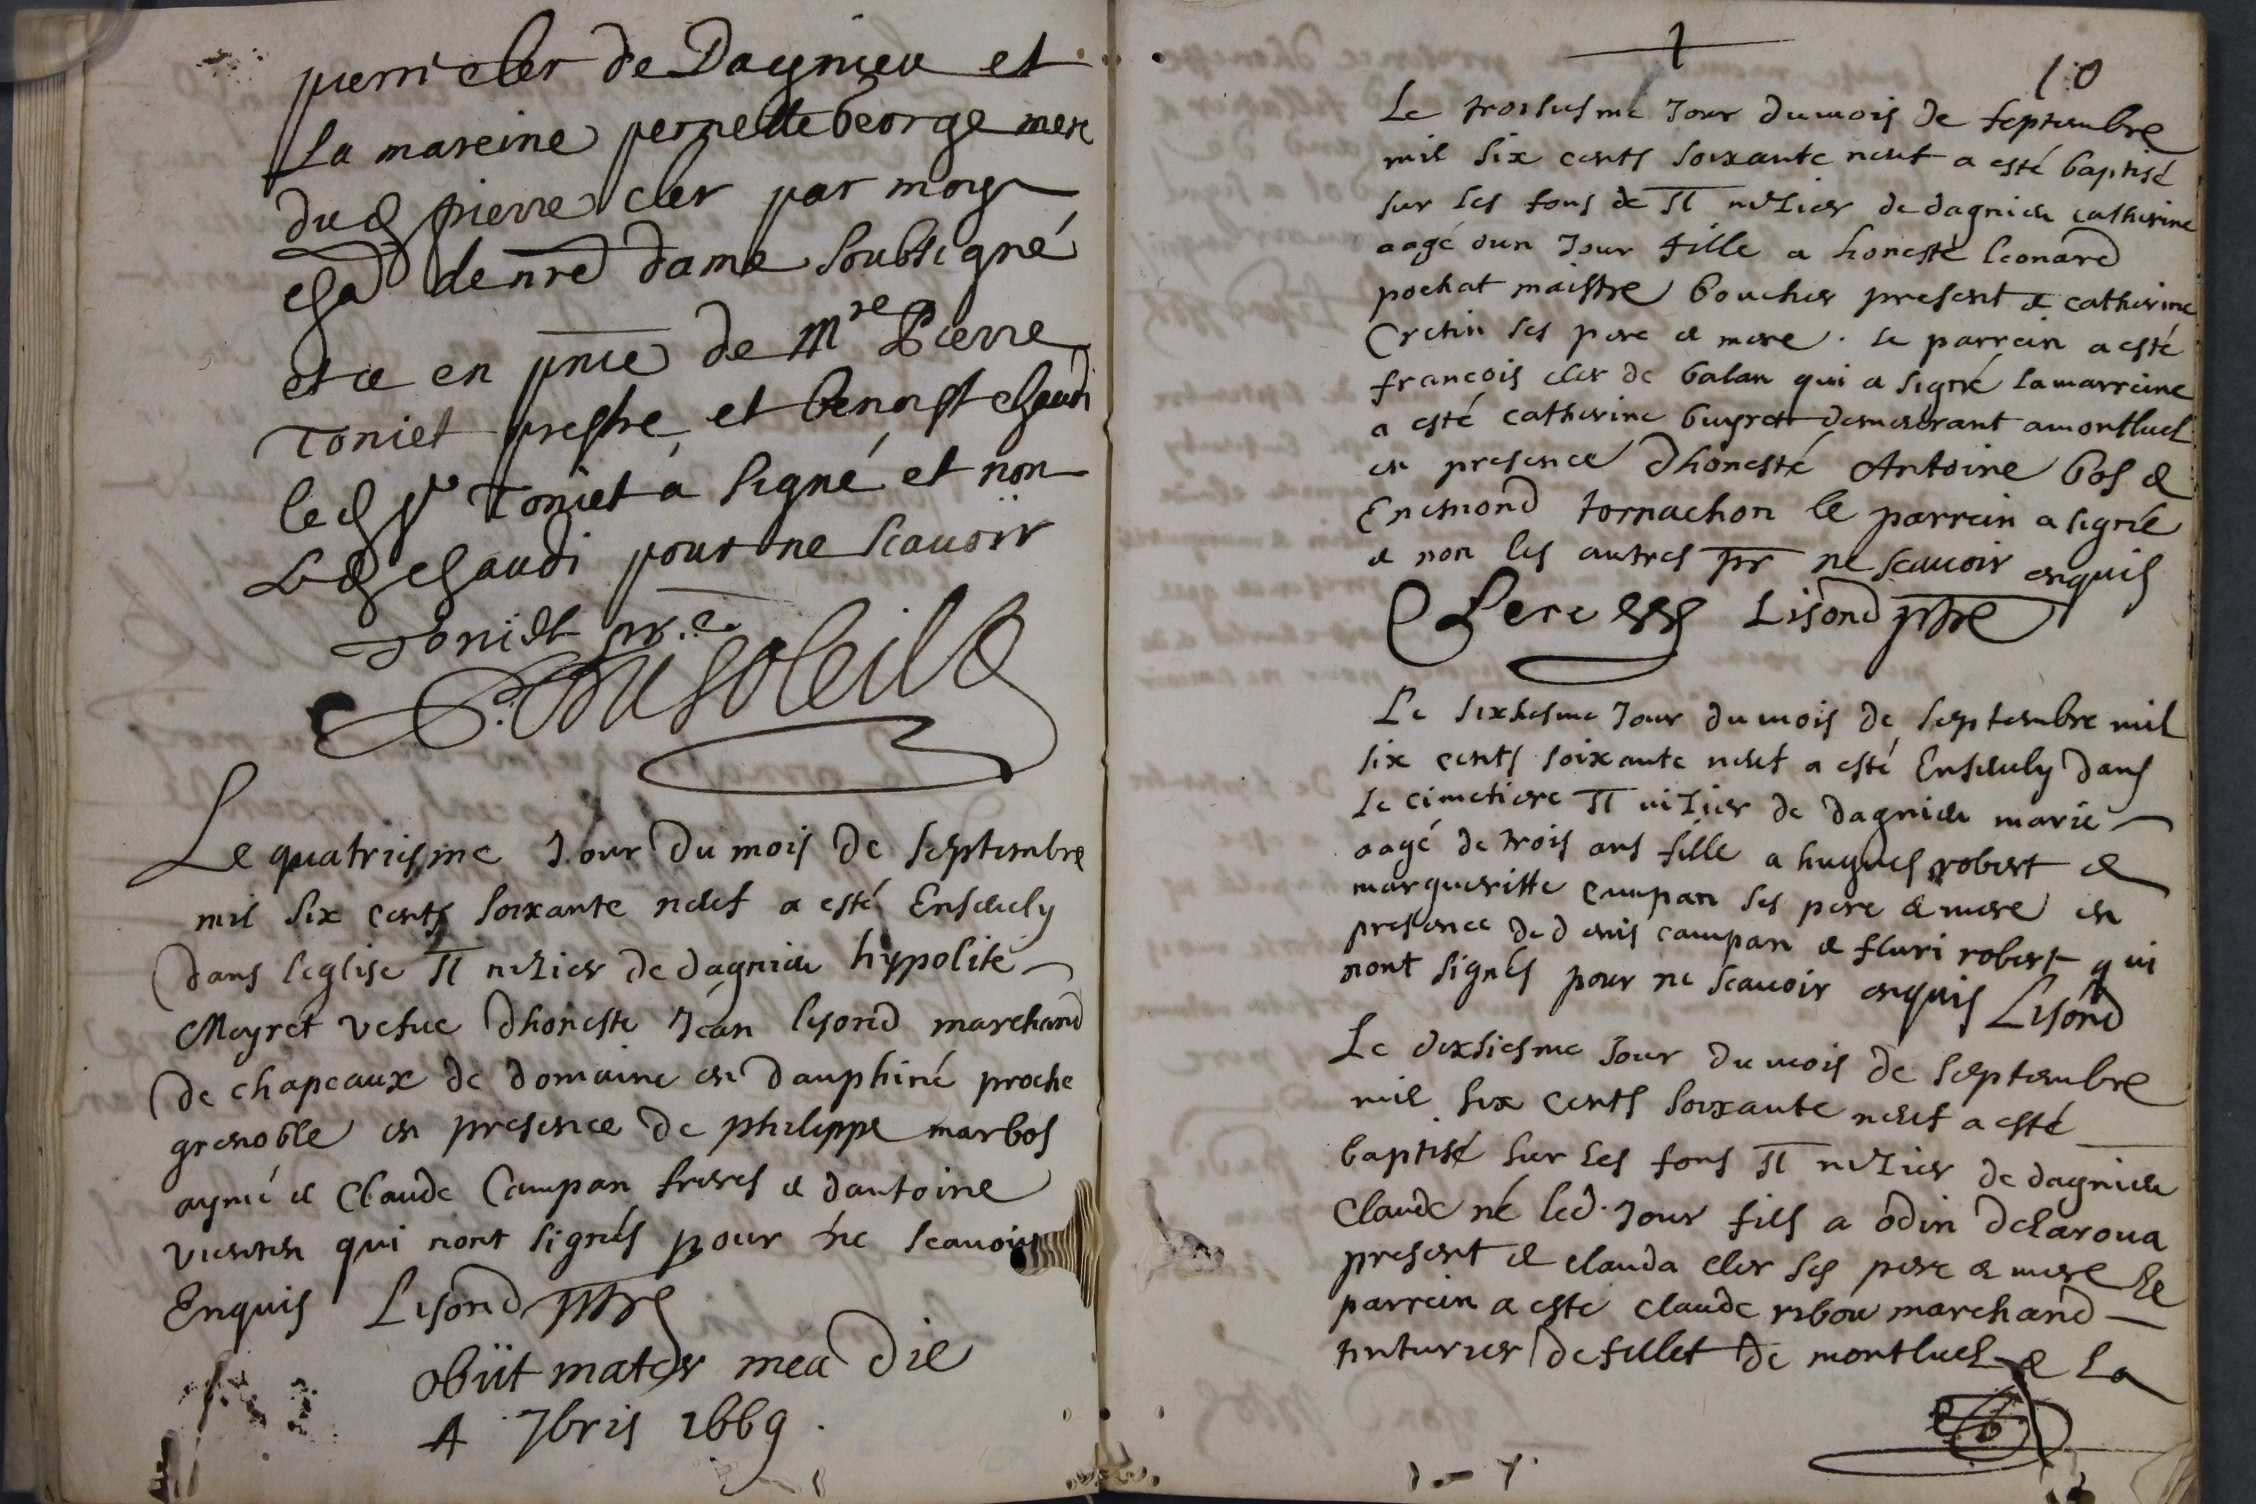 pierre cler de Dagnieu et
La mareine pernette George mere
dud pierre cler par moy
de nre dame soubsigné
et ce en pnce de Mre Pierre
Toniet prestre et benoist chaudi
led Sr Toniet a signé et non
Led chaudi pour ne scavoir
Toniet pr.e
Dusoleil
Le quatriesme Jour du mois de septembre
mil six cents soixante neuf a esté Enseuely
dans leglise St nizier de dagnieu hypolite
Meyret vefue dhoneste Jean lisond marchand
de chapeaux de domaine en dauphiné proche
grenoble en presence de philippe marbos
aymé & Claude Campan freres & dantoine
qui nont signés pour ne scauoir
Enquis Lisond pbre
Obiit mater mea die
4 7bris 1669.
10
Le troisiesme Jour du mois de septembre
mil six cents soixante neuf a esté baptisé
sur les fons de St nizier de dagnieu catherine
aagé dun Jour fille a honeste leonard
pochat maistre boucher present & catherine
Cretin ses pere & mere . Le parrein a esté
francois cler de balan qui a signé la marreine
a esté catherine buyret demeurant a montluel
en presence dhonesté Antoine bos &
Enemond tornachon le parrein a signée
& non les autres pr ne scauoir enquis
Clerc Lisond pbre
Le sixsiesme Jour du mois de septembre mil
six cents soixante neuf a esté Enseuely dans
le cimetiere St nizier de dagnieu marie
aagé de trois ans fille a hugues robert &
margueritte campan ses pere & mere en
presence de denis campan & fluri robert qui
nont signés pour ne scauoir enquis Lisond
Le dixsiesme Jour du mois de septembre
mil six cents soixante neuf a esté
baptisé sur les fons St nizier de dagnieu
Claude né led. Jour fils a odin delaroua
present & clauda cler ses pere & mere Le
parrein a este claude ribou marchand
tinturier de fillet de montluel & La